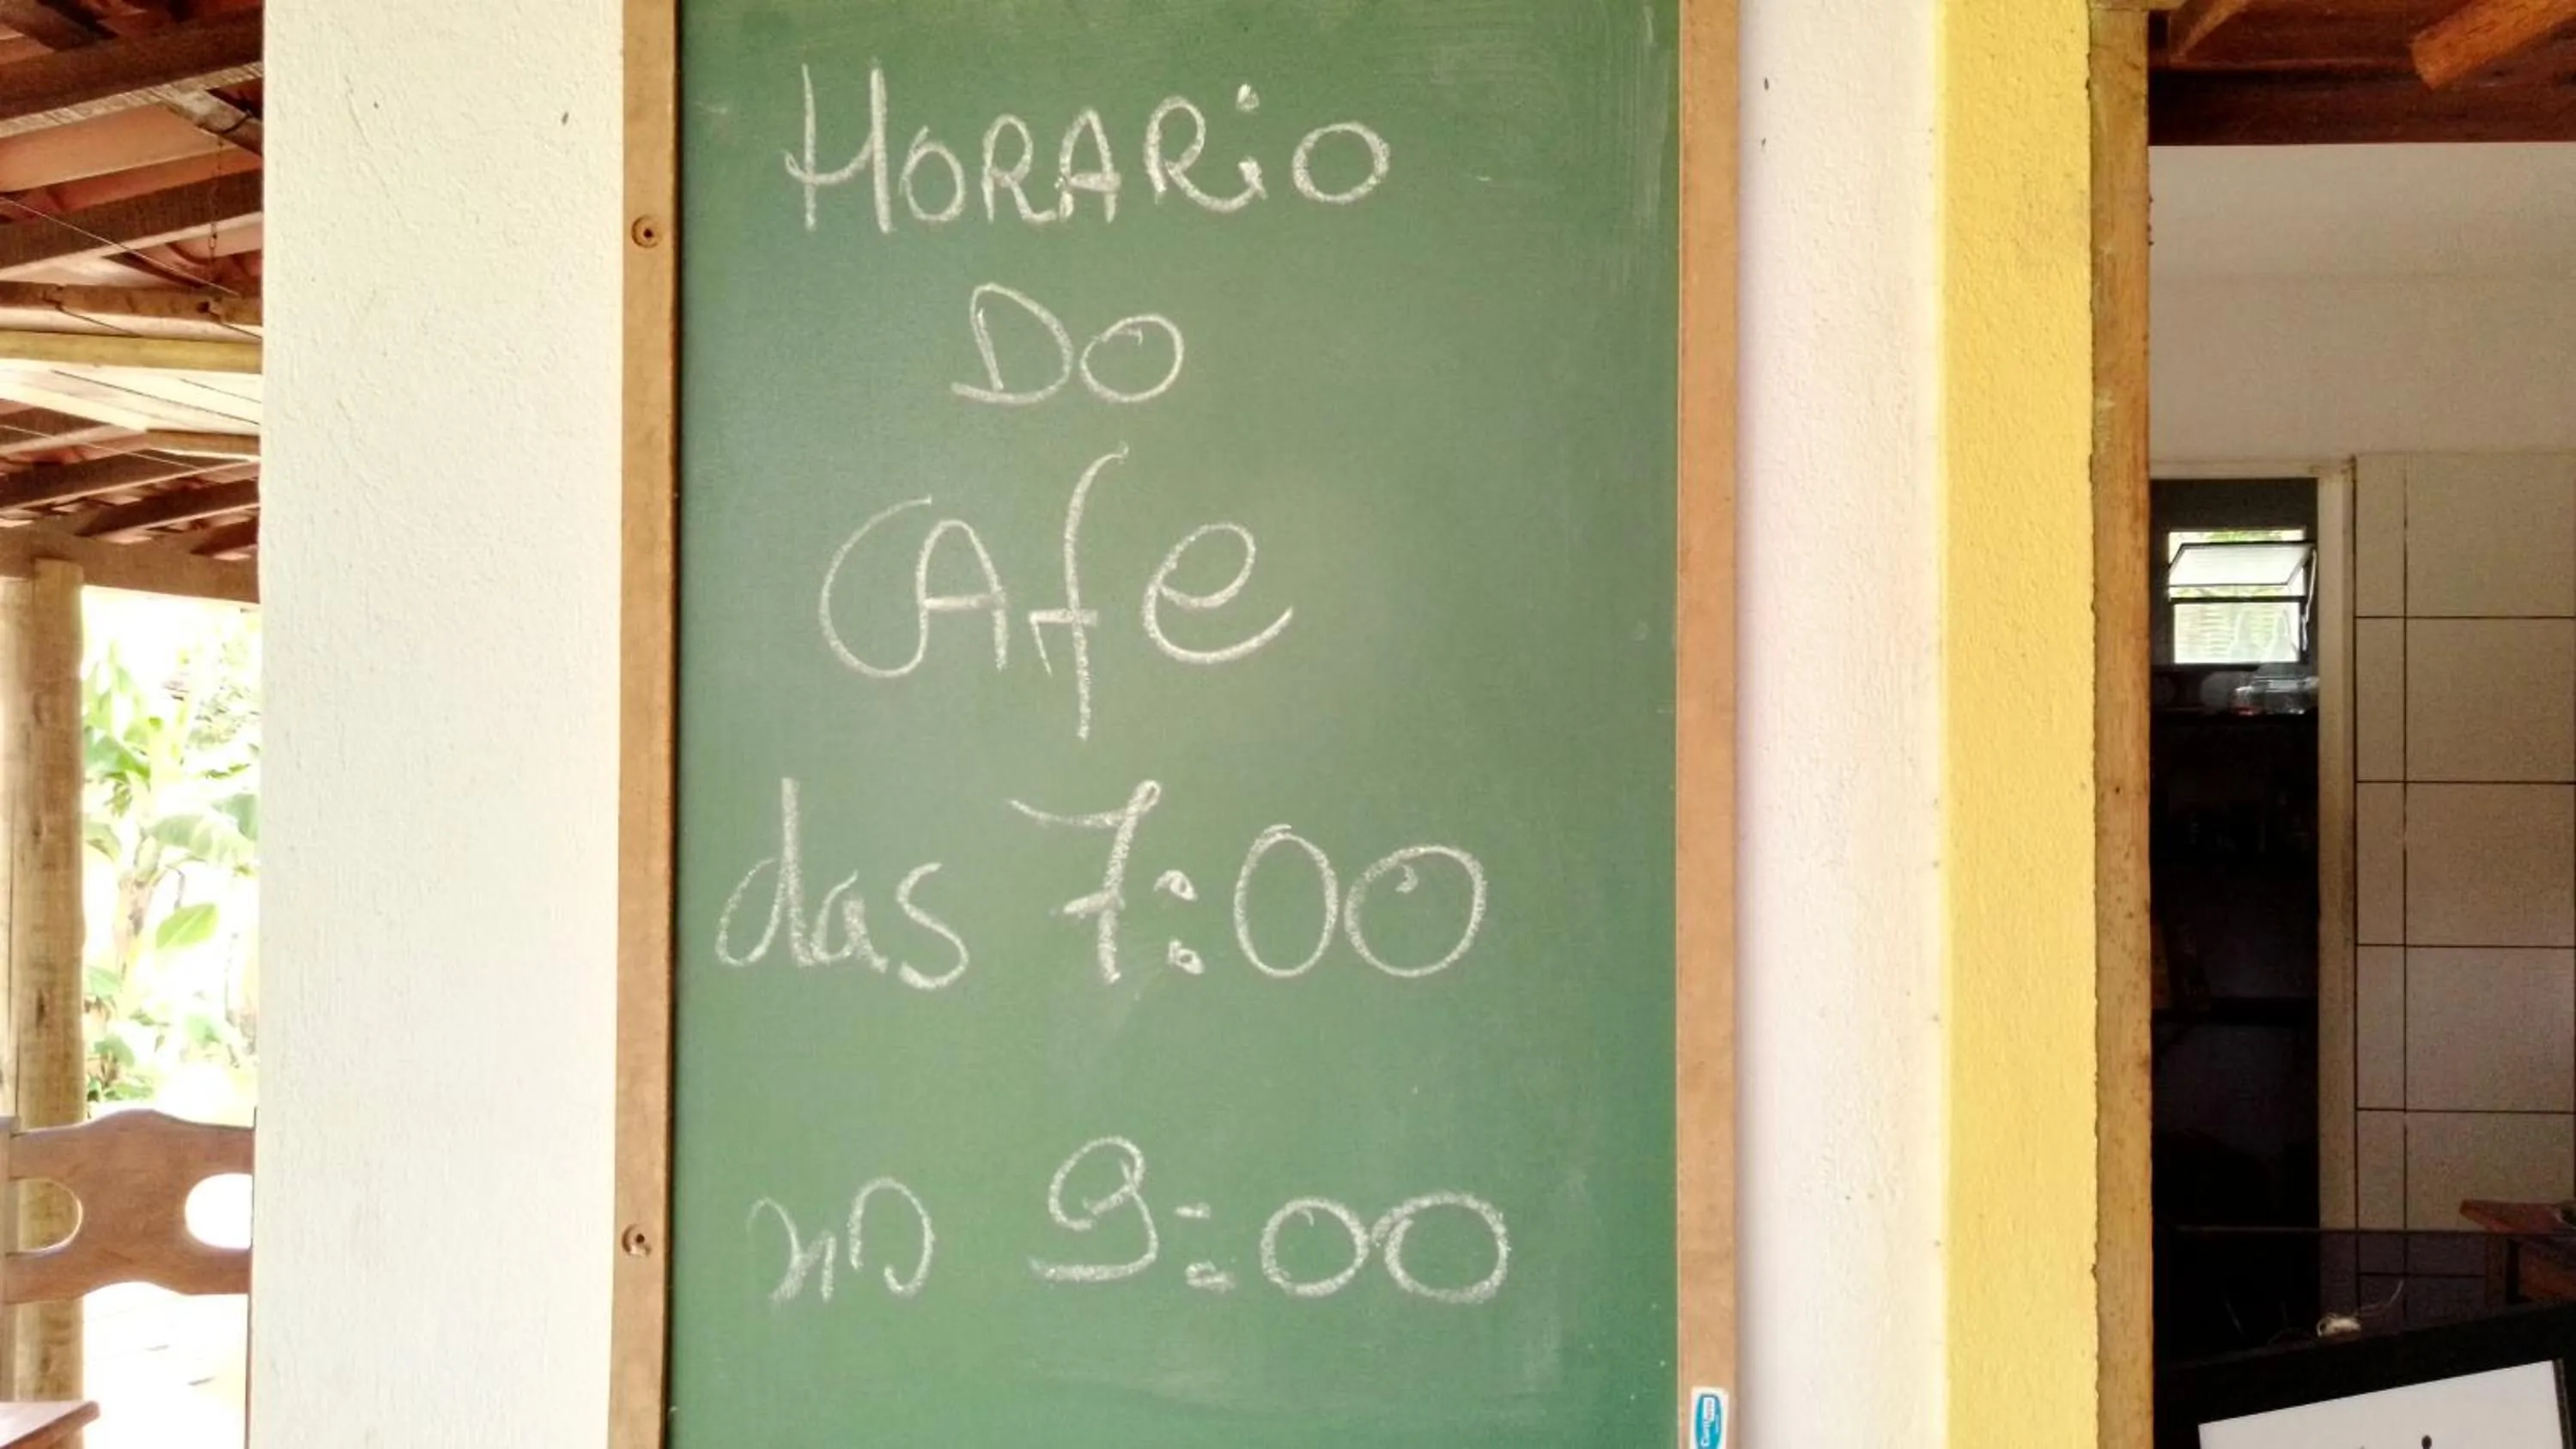 HORARiO
DO
CAfe
das 7:00
9:00